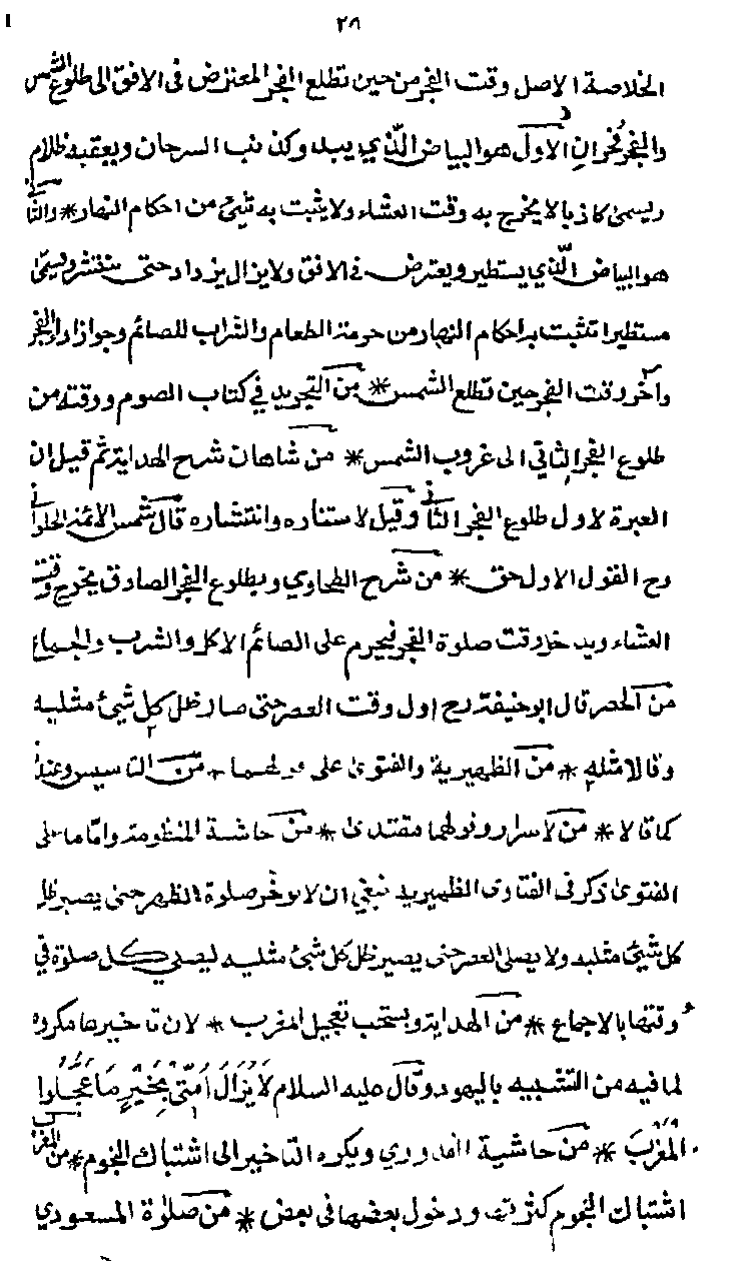 ٢٨
الخلاصة الاصل وقت الفجر من حين تطلع الفجر المعترض فى الافق الى طلوع الشمس
والفجر فجران الاول هو البياض الّذي يبدو كذنب السرحان ويعقبه ظلام
ويسمى كاذبا لا يخرج به وقت العشاء ولا يثبت به شئ من احكام النهار * والثانى
هو البياض الّذي يستطير ويعترض فى الافق ولا يزال يزداد حتى ينتشر ويسمى
مستطيرا تثبت به احكام النهار من حرمة الطعام والشراب للصائم وجواز اداء الفجر
وآخر وقت الفجر حين تطلع الشمس * من التجريد في كتاب الصوم ووقته من
طلوع الفجر الثاني الى غروب الشمس * من شاهان شرح الهداية ثم قيل ان
العبرة لاول طلوع الفجر الثانى وقيل لاستناره وانتشاره قال شمس الائمة الحلوانى
رح القول الاول حق * من شرح الطحاوي وبطلوع الفجر الصادق يخرج وقت
العشاء ويدخل وقت صلوة الفجر فيحرم على الصائم الاكل والشرب والجماع
من الحصر قال ابو حنيفة رح اول وقت العصر حتى صار ظل كل شئ مثليه
وقالا مثله * من الظهيرية والفتوى على قولهما * من التاسيس وعندنا
كما قالا * من الاسرار وقولهما مقتدى * من حاشية المنظومة واما ما على
الفتوى ذكر فى الفتاوى الظهيرية ينبغي ان لا يؤخر صلوة الظهر حتى يصير ظل
كل شئ مثليه ولا يصلى العصر حتى يصير ظل كل شئ مثليه ليصلي كل صلوة في
وقتها بالاجماع * من الهداية ويستحب تعجيل المغرب * لان تاخيرها مكروه
لما فيه من التشبيه باليهود وقال عليه السلام لَا يَزَالُ اُمَّتِيْ بِخَيْرٍ مَا عَجَّلُوا
الْمَغْرِبَ * من حاشية القدوري ويكره التاخير الى اشتباك النجوم * من المغرب
اشتباك النجوم كثرتها ودخول بعضها فى بعض * من صلوة المسعودي